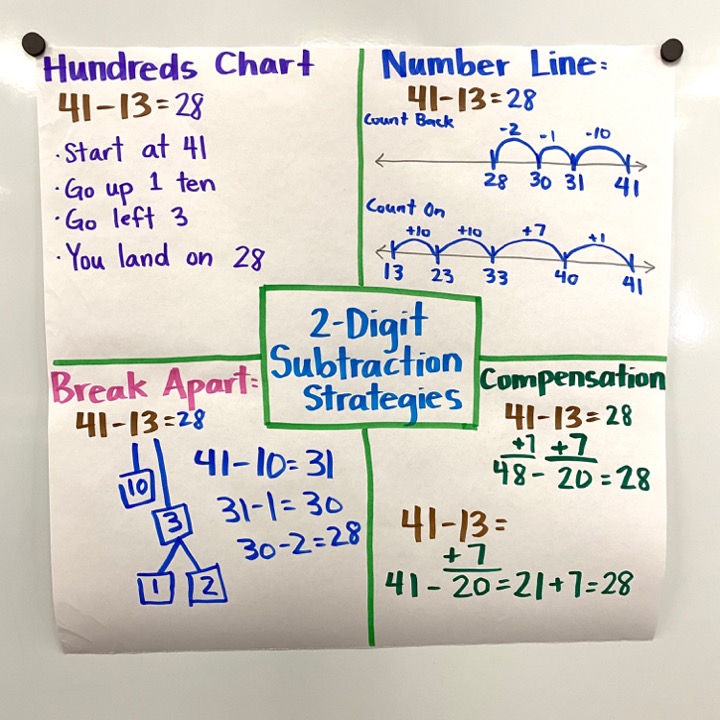 Hundreds Chart
41-13=28
·Start at 41
·Go up 1 ten
·Go left 3
·You land on 28
Number Line:
41-13=28
Count Back
-2 -1 -10
28 30 31 41
Count On
+10 +10 +7 +1
13 23 33 40 41
2-Digit
Subtraction
Strategies
Break Apart:
41-13=28
10
3
1 2
41-10=31
31-1=30
30-2=28
Compensation
41-13=28
+7 +7
48-20=28
41-13=
+7
41-20=21+7=28